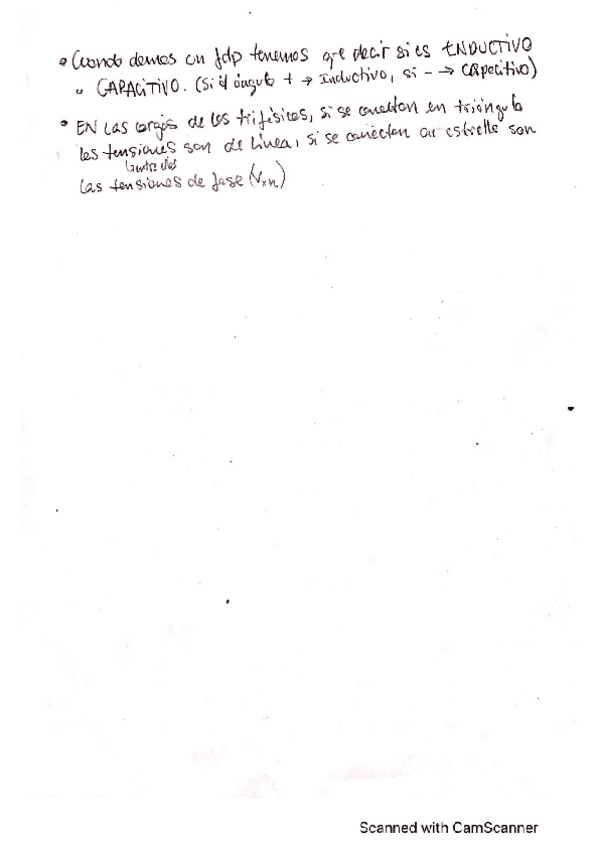 • Cuando demos un fdp tenemos que decir si es INDUCTIVO
o CAPACITIVO. (Si el ángulo + → Inductivo, si - → Capacitivo)
• EN Las cargas de los trifásicos, si se conectan en triángulo
las tensiones son de línea, si se conectan en estrella son
Las tensiones de fase (Vxn)
Scanned with CamScanner